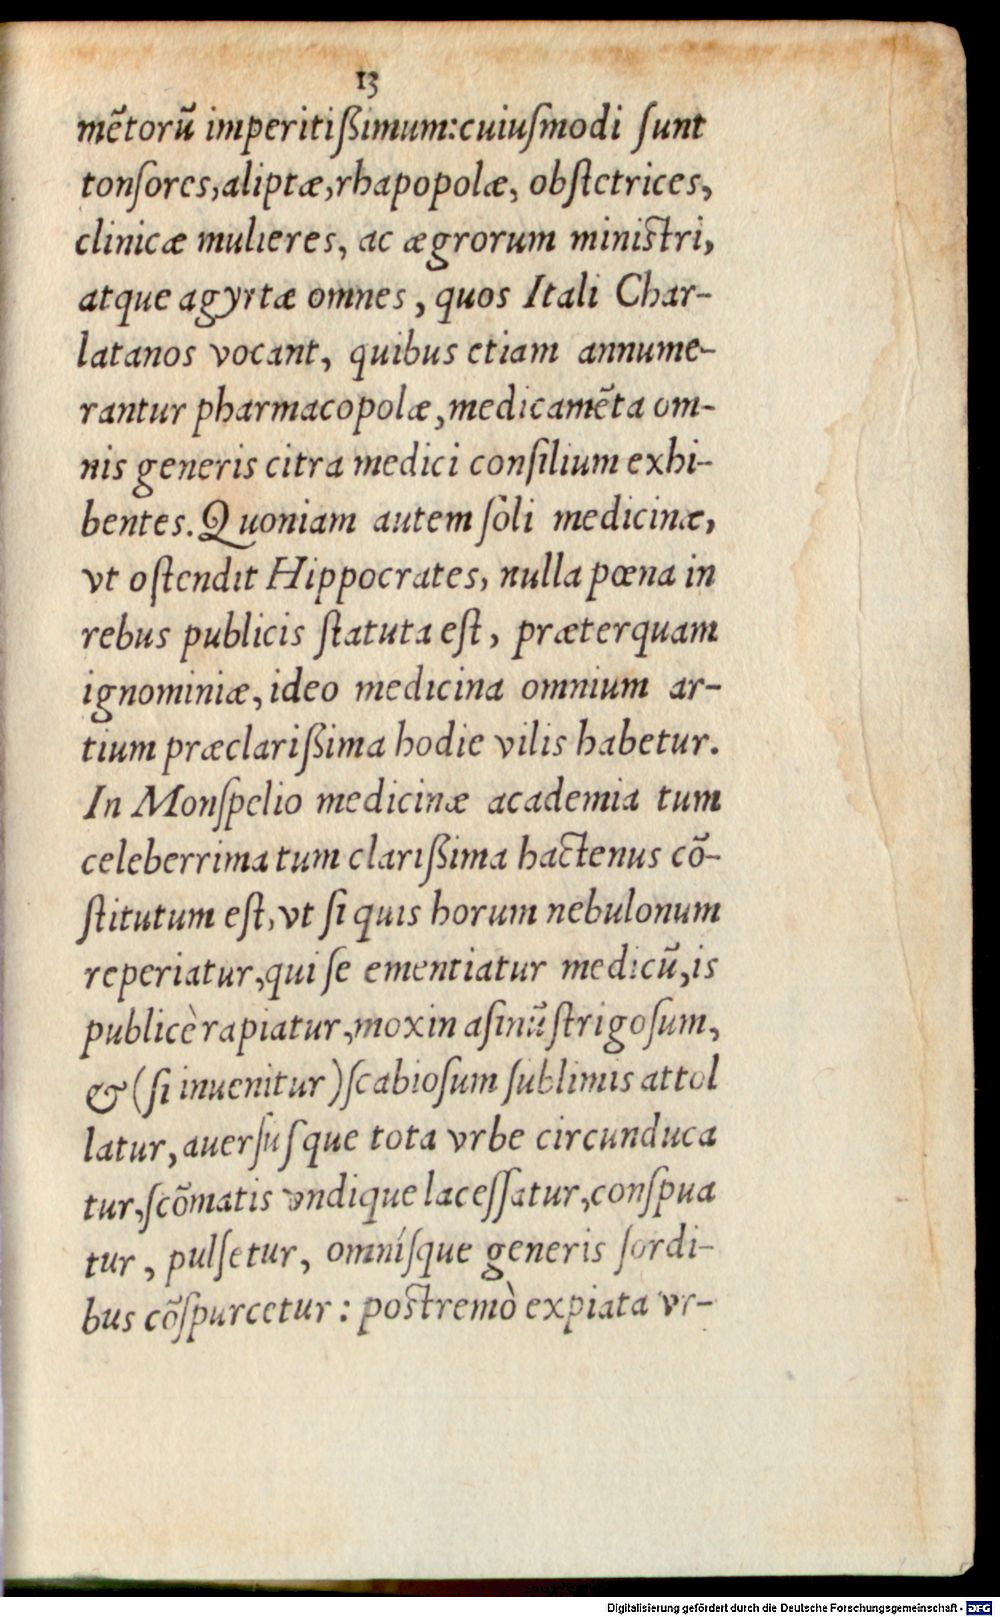 13
mẽtorũ imperitißimum:cuiuſmodi ſunt
tonſores,aliptæ,rhapopolæ, obſtetrices,
clinicæ mulieres, ac ægrorum miniſtri,
atque agyrtæ omnes , quos Itali Char-
latanos vocant, quibus etiam annume-
rantur pharmacopolæ,medicamẽta om-
nis generis citra medici conſilium exhi-
bentes.Quoniam autem ſoli medicinæ,
vt oſtendit Hippocrates, nulla pœna in
rebus publicis ſtatuta eſt, præterquam
ignominiæ,ideo medicina omnium ar-
tium præclarißima hodie vilis habetur.
In Monſpelio medicinæ academia tum
celeberrima tum clarißima hactenus cõ-
ſtitutum eſt,vt ſi quis horum nebulonum
reperiatur,qui ſe ementiatur medicũ,is
publicè rapiatur,mox in aſinũ ſtrigoſum,
&(ſi inuenitur)ſcabioſum ſublimis attol
latur,auerſuſque tota vrbe circunduca
tur,ſcõmatis vndique laceſſatur,conſpua
tur , pulſetur, omníſque generis ſordi-
bus cõſpurcetur : poſtremò expiata vr-
Digitalisierung gefördert durch die Deutsche Forschungsgemeinschaft - DFG